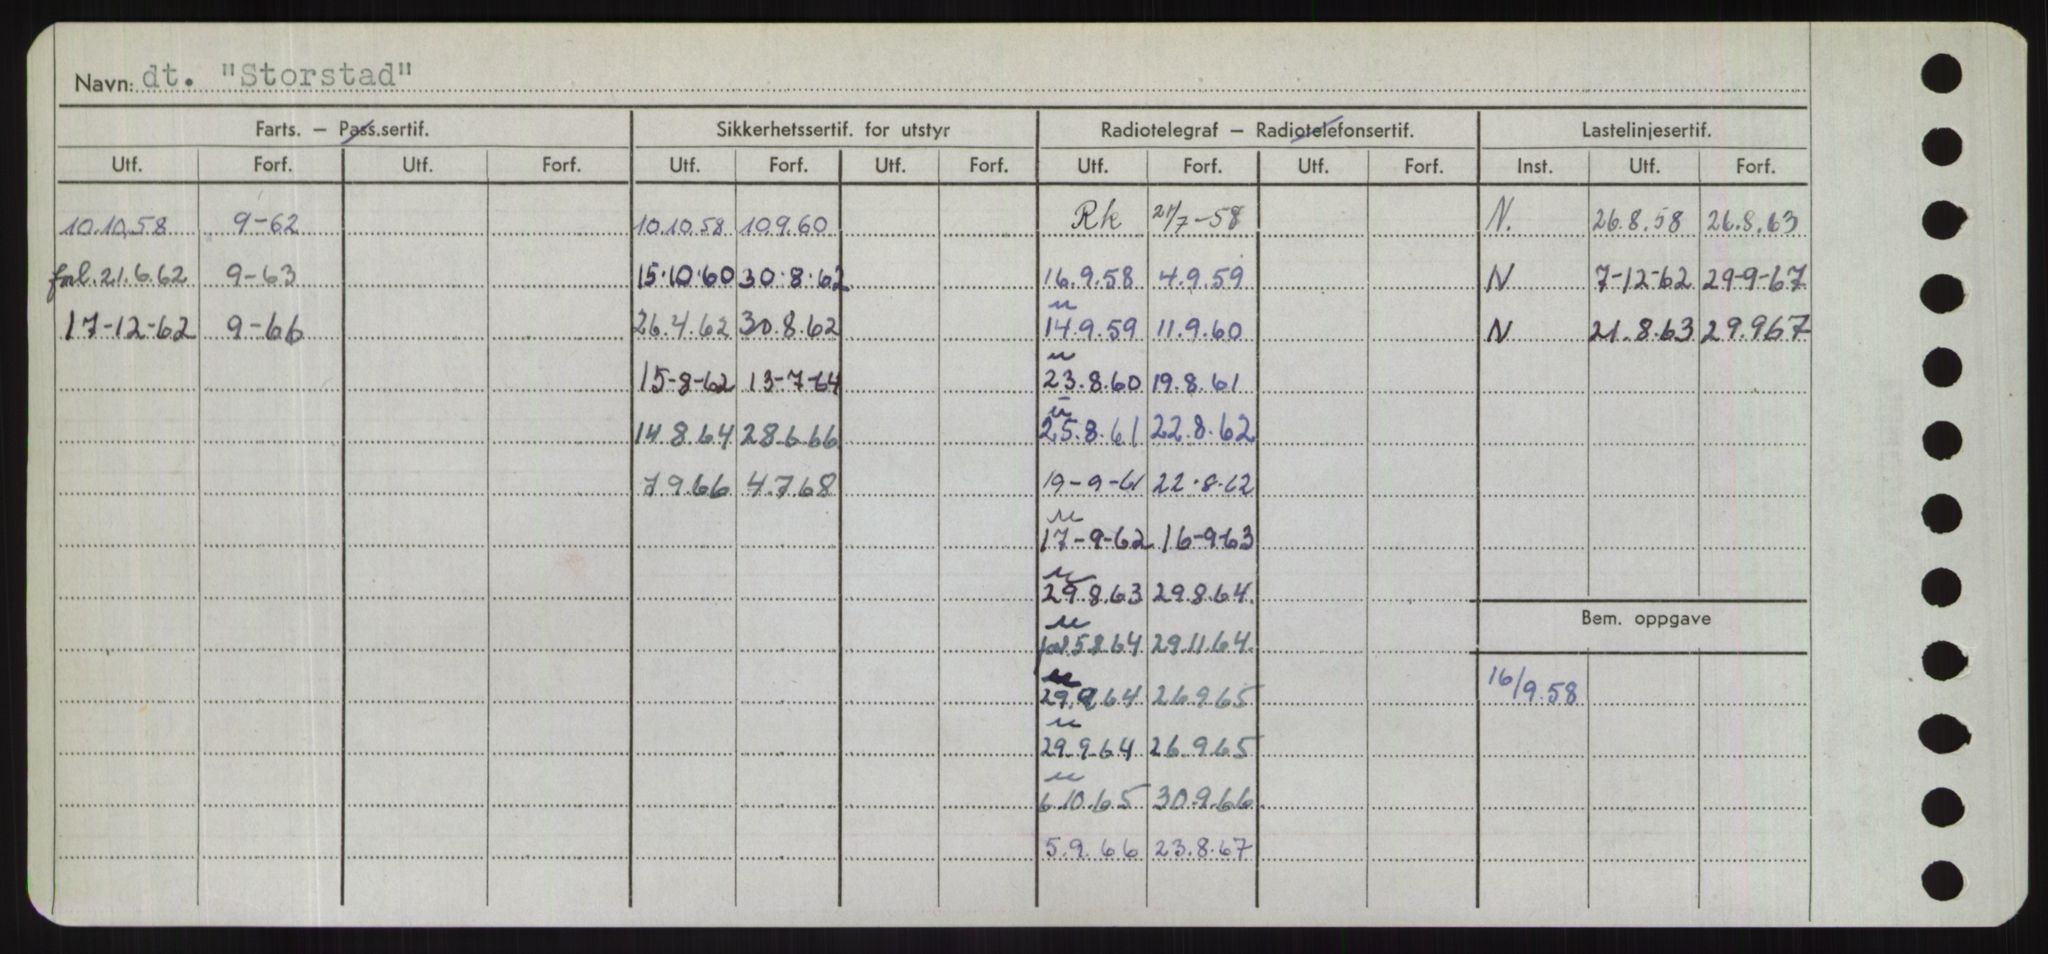 Navn: dt. "Storstad"
Farts. – Pass.sertif. Sikkerhetssertif. for utstyr Radiotelegraf – Radiotelefonsertif. Lastelinjesertif.
Utf. Forf. Utf. Forf. Utf. Forf. Utf. Forf. Utf. Forf. Utf. Forf. Inst. Utf. Forf.
10.10.58 9-62 10.10.58 10.9.60 Rk /7-58 N. 26.8.58 26.8.63
forl.21.6.62 9-63 15.10.60 30.8.62 16.9.58 4.9.59 N 7-12-62 29-9-67
17-12-62 9-66 26.4.62 30.8.62 14.9.59 11.9.60 N 21.8.63 29.967
15-8-62 13-7-64 23.8.60 19.8.61
14.8.64 28.6.66 25.8.61 22.8.62
7.9.66 4.7.68 19-9-61 22.8.62
17-9-62 16-9-63
29.8.63 29.8.64.
Bem. oppgave
forl.5.8.64 29.11.64.
29.9.64 26.9.65 16/9.58
29.9.64 26.9.65
6.10.65 30.9.66
5.9.66 23.8.67